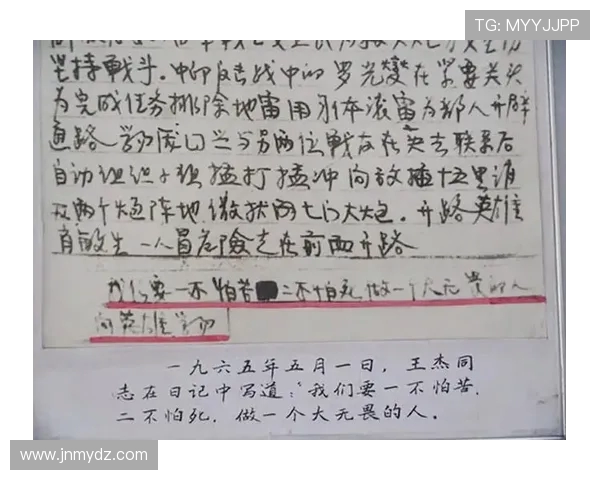 TG: MYYJJPP
坚持戰斗。中印反击战中的罗光燮在紧要关头
为完成任务排除地雷用身体滚雷为部人开辟
通路 学习庞国兴与另两位戰友在失去联系后
自动组织小组猛打猛冲向敌插十五里消
灭两个炮阵地 缴获两七门大炮. 开路英雄
肖敏生 一人冒危險走在前面开路
我们要一不怕苦 二不怕死 做一个大无畏的人
向英雄学习
一九六五年五月一日，王杰同
志在日记中写道：“我们要一不怕苦，
二不怕死，做一个大无畏的人。
www.jnmydz.com